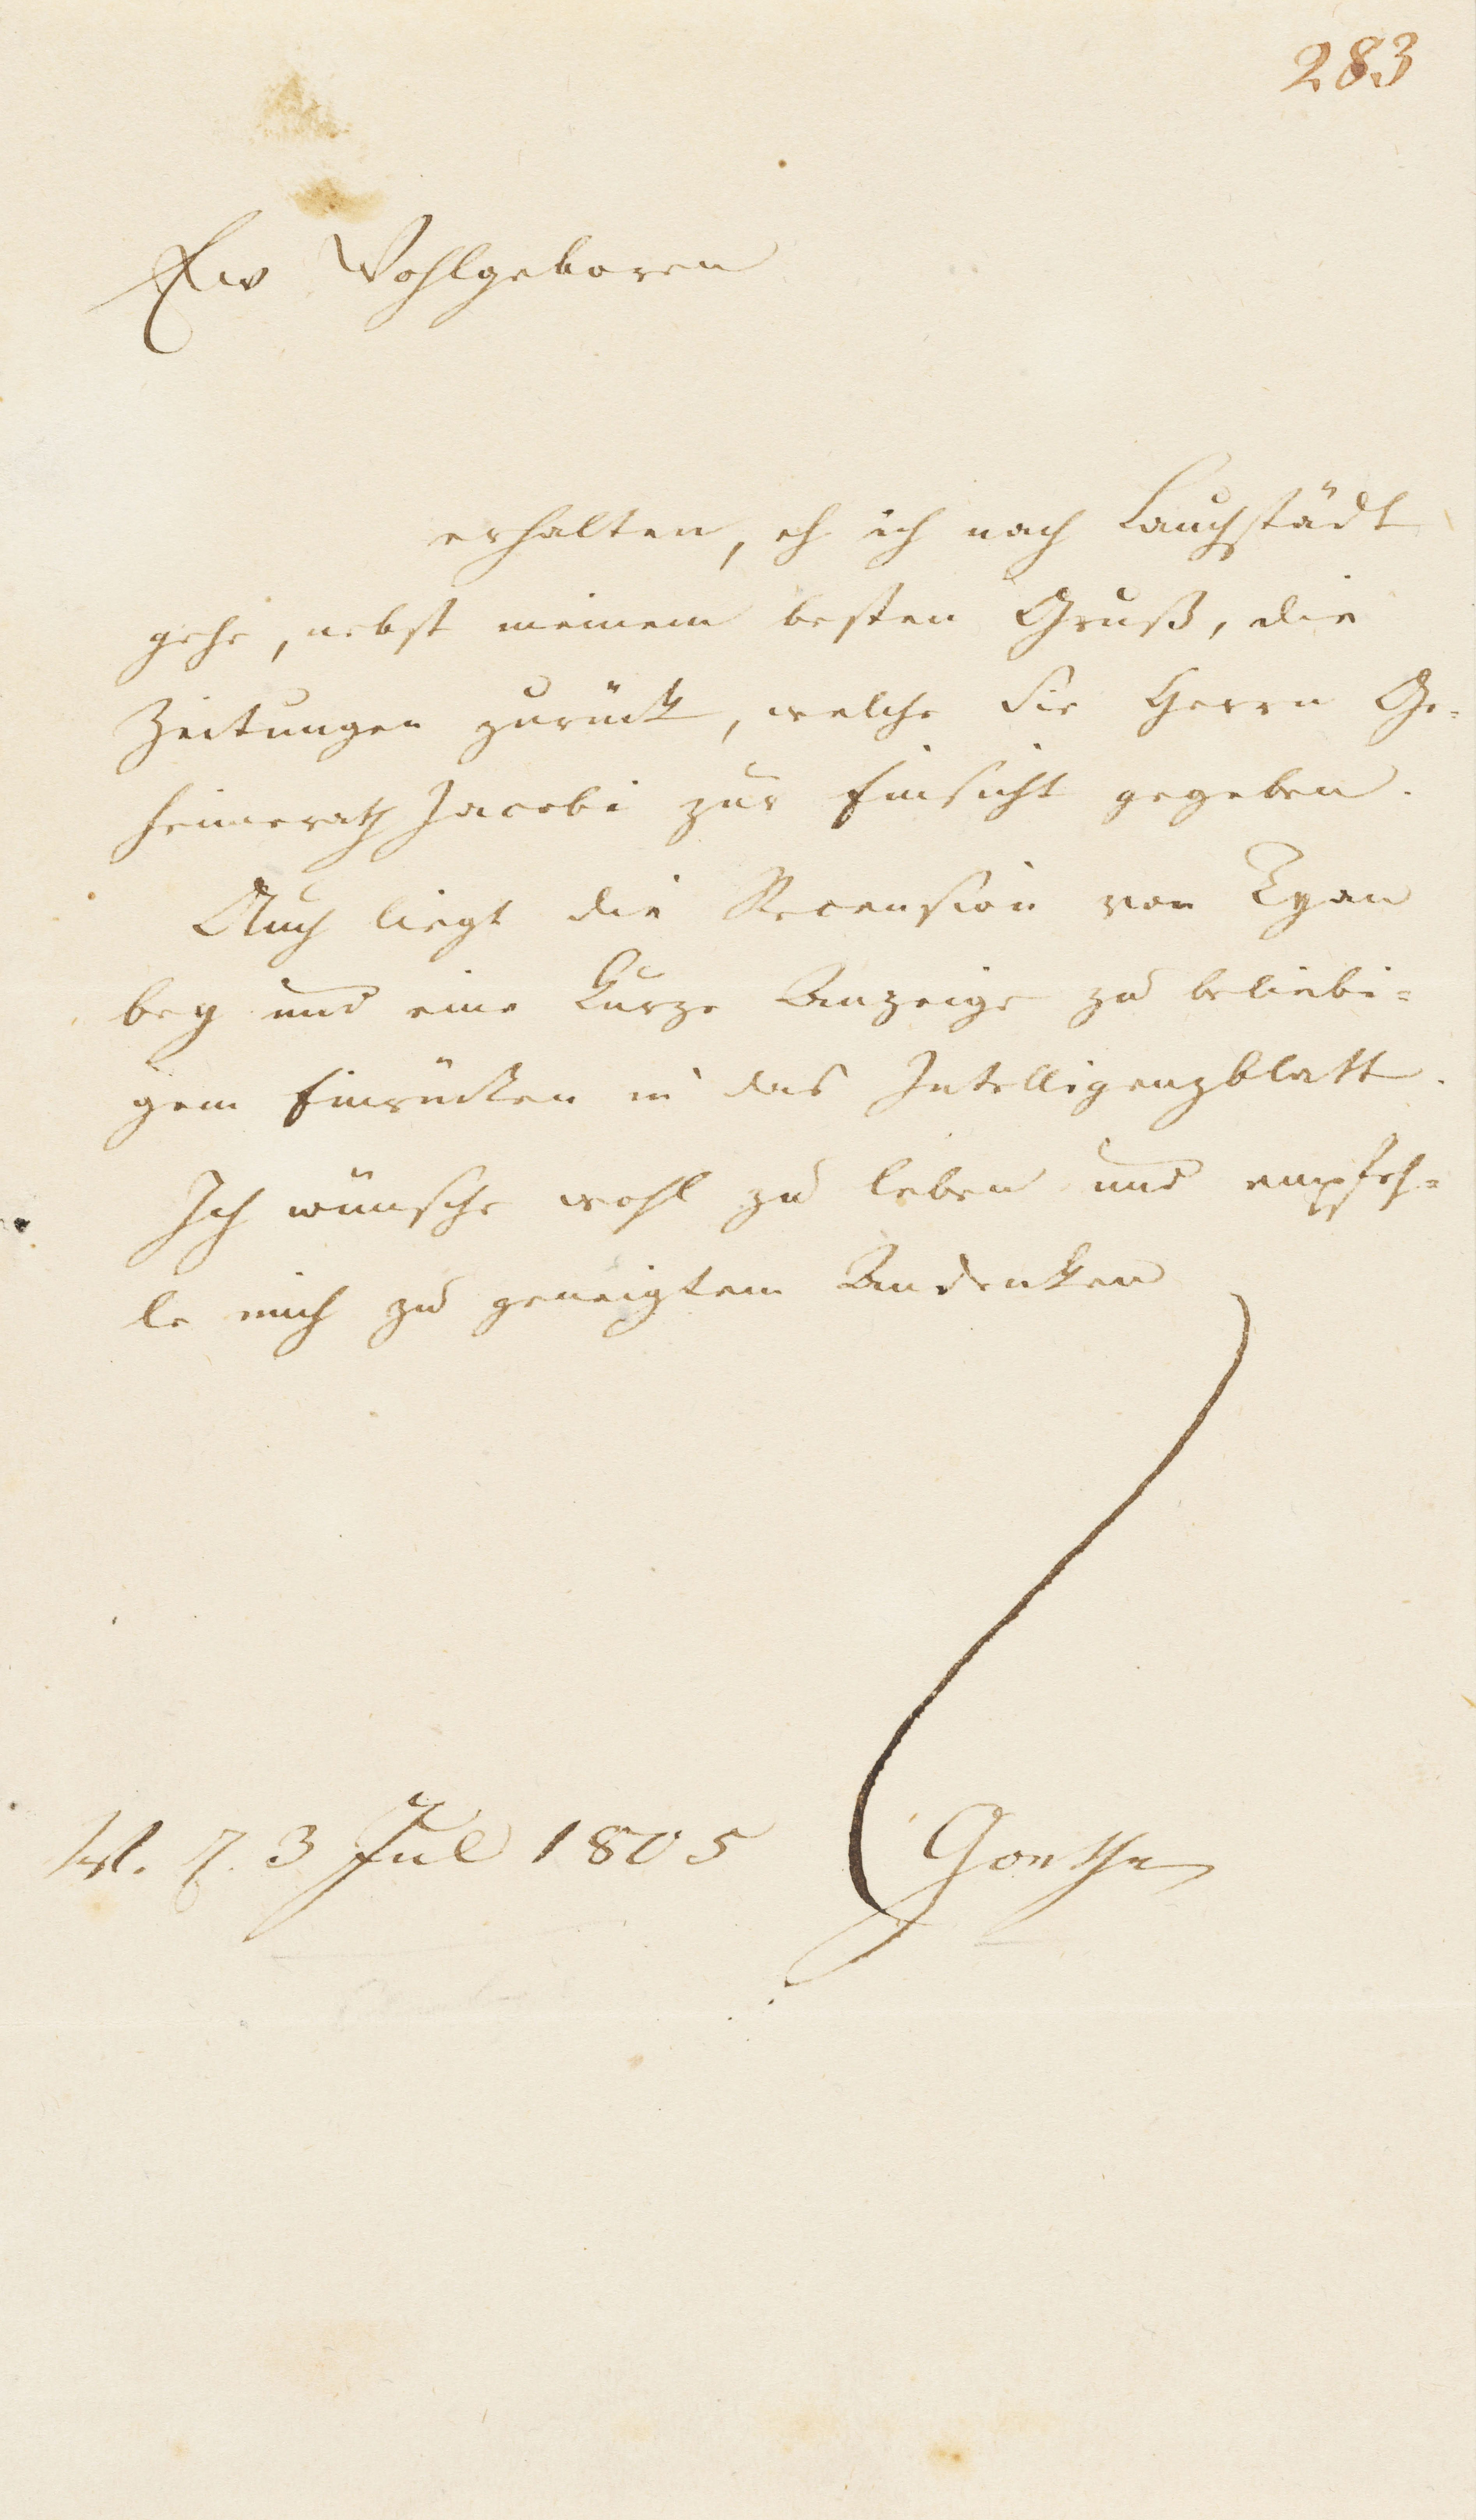 283
Ew Wohlgeboren
erhalten, eh ich nach Lauchstädt
gehe, nebst meinem besten Gruß, die
Zeitungen zurück, welche Sie Herrn Ge=
heimerath Jacobi zur Einsicht gegeben.
Auch liegt die Recension von
bey und eine kurze Anzeige zu beliebi=
gem Einrücken in das Intelligenzblatt.
Ich wünsche wohl zu leben und empfeh=
le mich zu geneigtem Andenken
W. d. 3 Jul 1805 Goethe